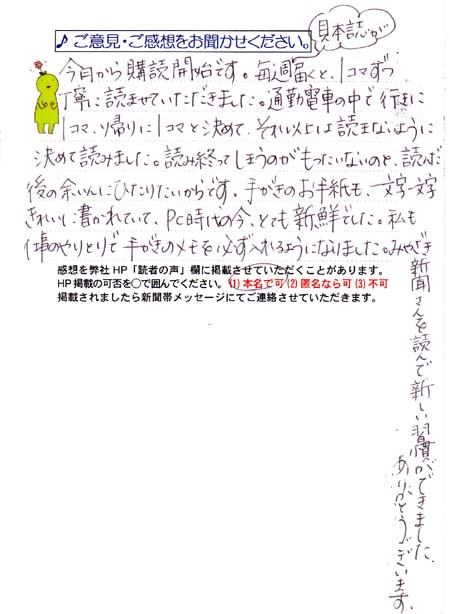 ♪ご意見・ご感想をお聞かせください。
見本誌
今日から購読開始です。毎週届くと、1コマずつ
丁寧に読ませていただきました。通勤電車の中で行きに
1コマ、帰りに1コマと決めて、それ以上は読まないように
決めて読みました。読み終ってしまうのがもったいないのと、読んだ
後の余いんにひたりたいからです。手がきのお手紙も、一文字一文字
きれいに書かれていて、PC時代の今、とても新鮮でした。私も
仕事のやりとりで手がきのメモを必ず入れるようになりました。みやざき
新聞さんを読んで新しい習慣ができました。
ありがとうございます。
感想を弊社HP「読者の声」欄に掲載させていただくことがあります。
HP掲載の可否を○で囲んでください。(1)本名で可 (2)匿名なら可 (3)不可
掲載されましたら新聞帯メッセージにてご連絡させていただきます。